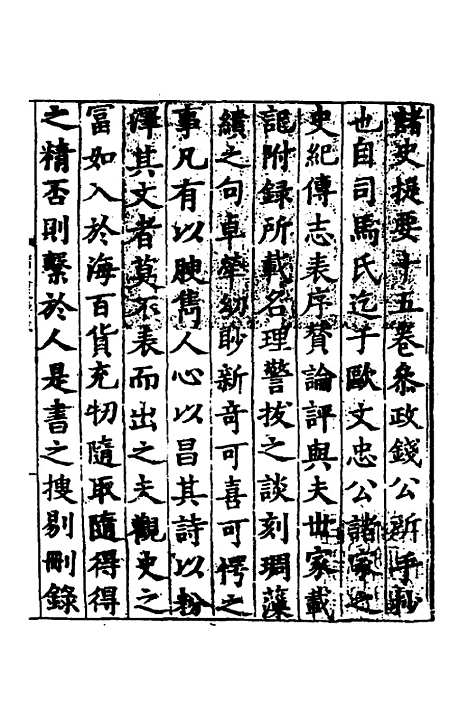 諸史提要十五卷叅政錢公所手鈔
也自司馬氏迄于歐文忠公諸家
史紀傳志表序贊論評與夫世家載
記附録所載名理警拔之談刻琱藻
繢之句卓犖幼眇新竒可喜可愕之
事凡有以腴雋人心以昌其詩以粉
澤其文者莫不表而出之夫觀史之
富如入於海百貨充牣隨取隨得得
之精否則繫於人是書之搜剔刪錄